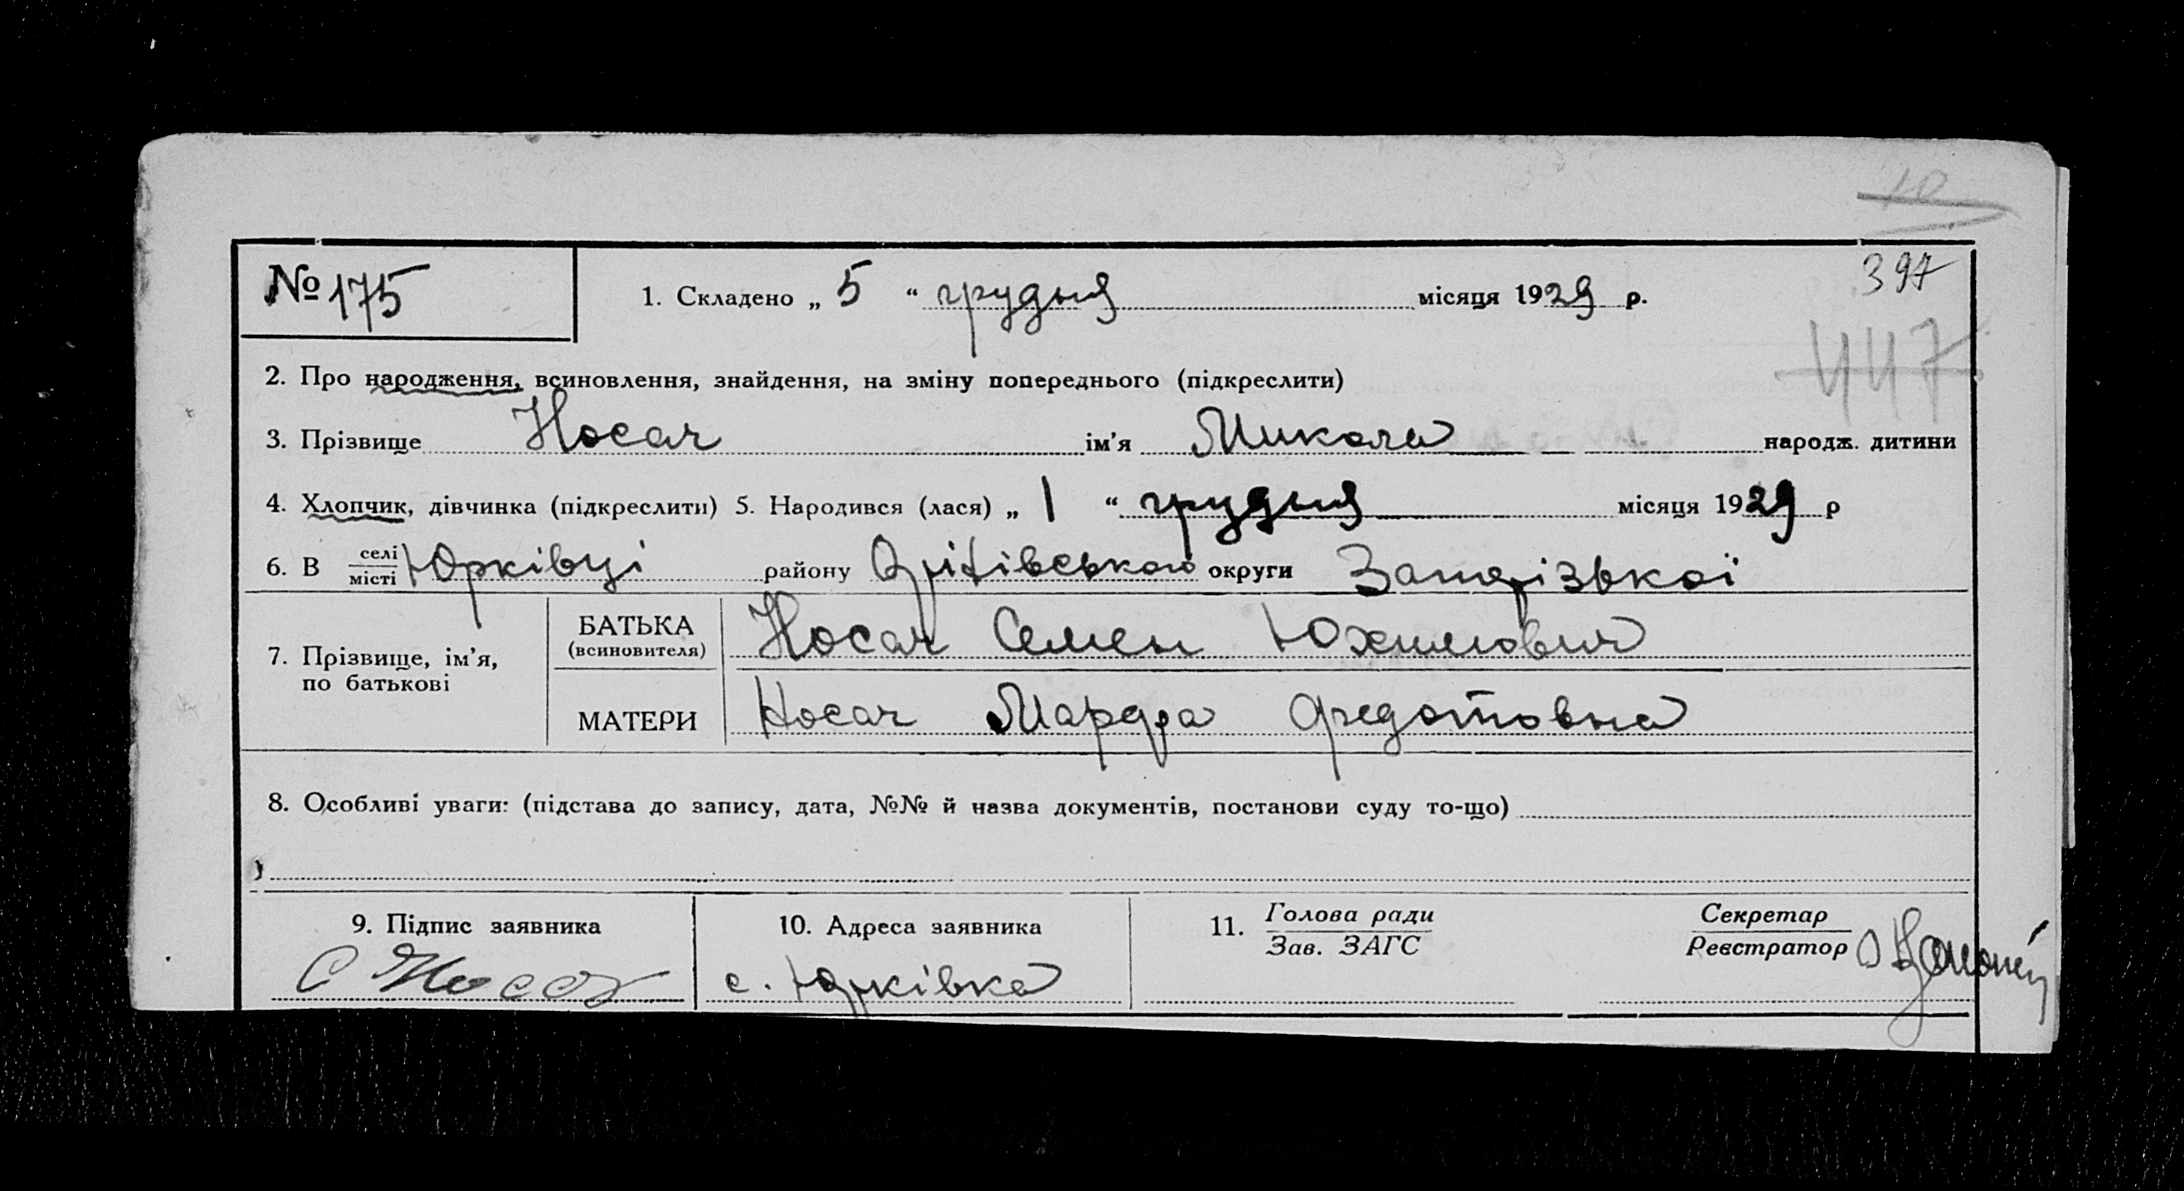 10
№ 175
1. Складено „ 5 “ грудня місяця 1929 р.
397
447
2. Про народження, всиновлення, знайдення, на зміну попереднього (підкреслити)
3. Прізвище Носач ім’я Микола народж. дитини
4. Хлопчик, дівчинка (підкреслити) 5. Народився (лася) „ 1 “ грудня місяця 1929 р
6. В селі/місті Юрківці району Оріхівського округи Запорізької
7. Прізвище, ім’я, по батькові
БАТЬКА (всиновителя) Носач Семен Юхимович
МАТЕРИ Носач Марфа Федотовна
8. Особливі уваги: (підстава до запису, дата, №№ й назва документів, постанови суду то-що)
9. Підпис заявника
С Носач
10. Адреса заявника
с. Юрківка
11. Голова ради
Зав. ЗАГС
Секретар
Реєстратор